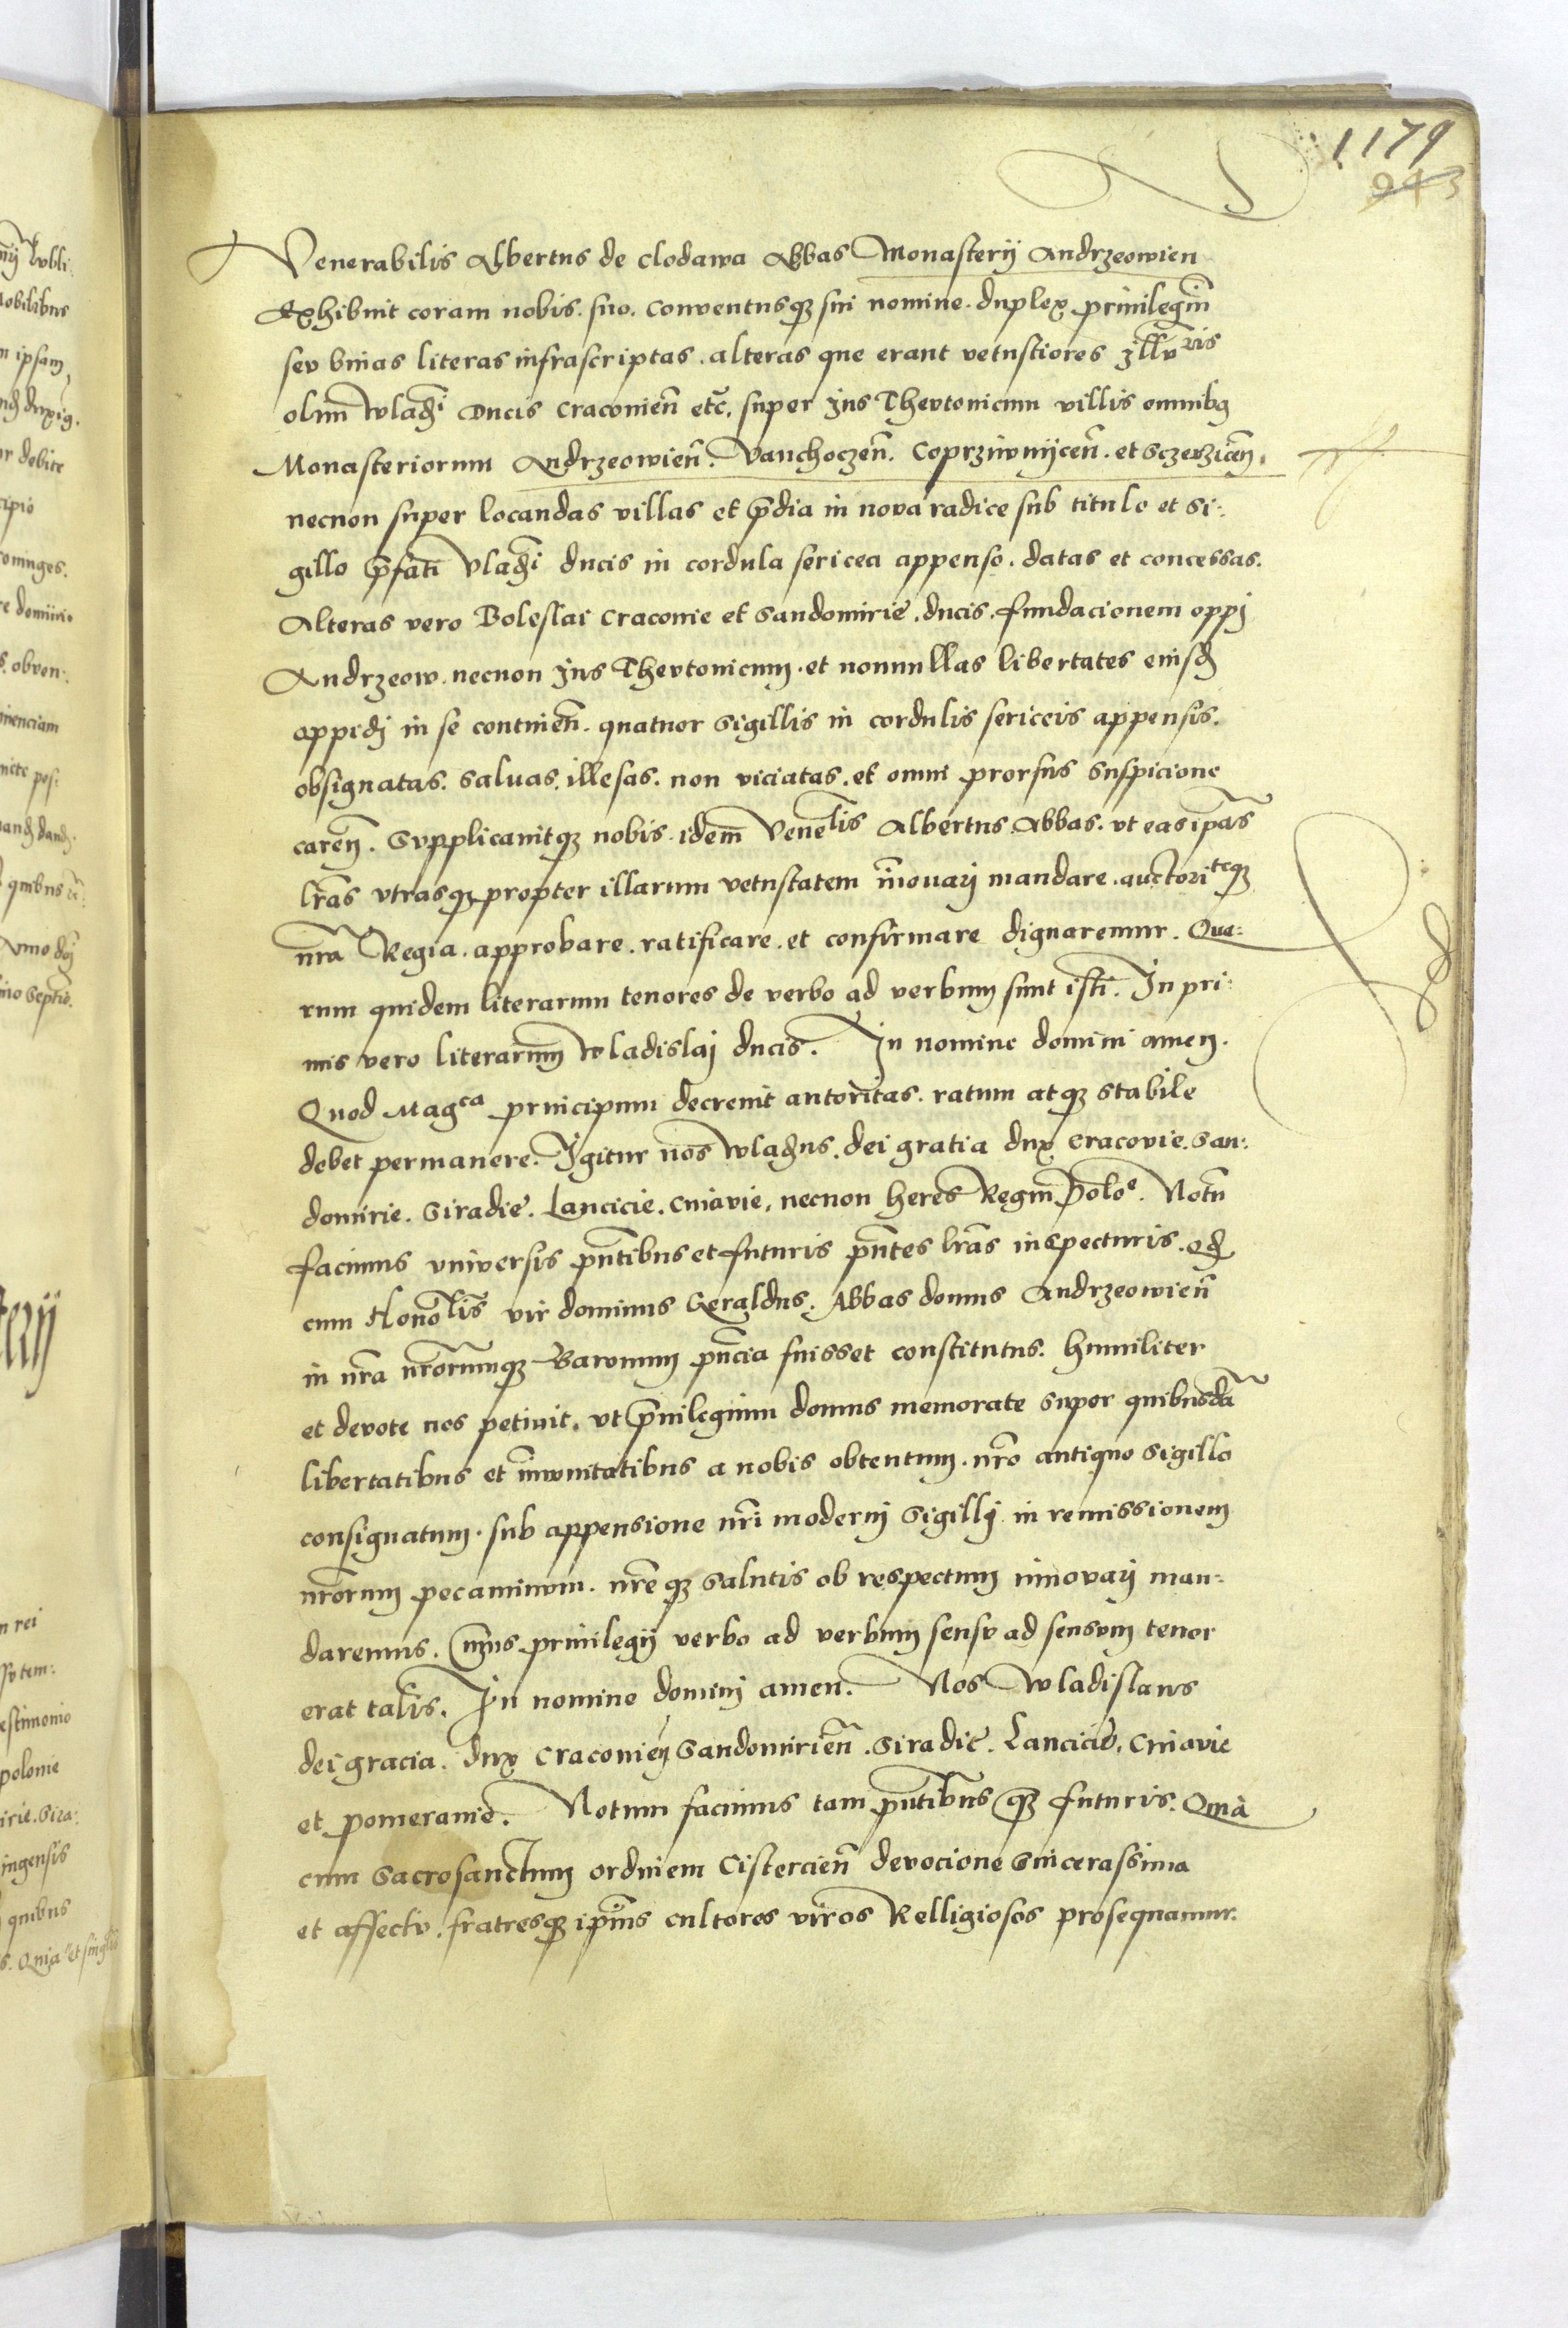 1179
943
Venerabilis Albertus de Clodawa Abbas Monasterÿ Andrzeowien
Exhibuit coram nobis. suo. Conventusqȝ sui nomine. duplex privilegiū
seu binas literas infrascriptas. alteras que erant vetustiores Illvris
olim Wladi Ducis Cracovien̄ etc̄. super Jus Thevtonicum villis omnibꝫ
Monasteriorum Andrzeowien̄. Vanchoczen̄. Coprziwnÿcen̄. et Sczerzicen̄.
necnon super locandas villas et p̄dia in nova radice sub titulo et si:
gillo p̄fati Vladi ducis in cordula sericea appenso. datas et concessas.
Alteras vero Boleslai Cracovie et Sandomirie. ducis. fundacionem oppi
Andrzeow. necnon Jus Thevtonicum. et nonnullas libertates eiusd
oppidj in se continen̄. quatuor Sigillis in cordulis sericeis appensis.
obsignatas. Salvas. illesas. non viciatas. et omni prorsus suspicione
caren̄. Supplicavitqȝ nobis. idem Venelis Albertus Abbas. vt eas ip̄as
lr̄as vtrasqȝ propter illarum vetustatem īnovarj mandare. auctoriteqȝ
nr̄a Regia. approbare. ratificare. et confirmare dignaremur. Quo:
rum quidem literarum tenores de verbo ad verbum sunt isti. In pri:
mis vero literarum Wladislaj ducis. In nomine domini amen.
Quod Magca principum decrevit autoritas. ratum atqȝ stabile
debet permanere. Igitur nos Wladus. dei gratia dux Cracovie. San:
domirie. Siradie. Lancicie. Cuiavie. necnon heres Regni Poloe. Notū
facimus vniversis pn̄tibus et futuris pn̄tes lr̄as inspecturis. qd
cum Honolis vir dominus Geraldus. Abbas domus Andrzeowien̄
in nr̄a nr̄orumqȝ Baronum pn̄cia fuisset constitutus. humiliter
et devote nos petivit. vt privilegium domus memorate super quibusdā
libertatibus et īmunitatibus a nobis obtentum. nr̄o antiquo sigillo
consignatum. sub appensione nr̄i modernj Sigillj in remissionem
nr̄orum pecaminum. nr̄eqȝ salutis ob respectum innovarj man:
daremus. Cuius privilegÿ verbo ad verbum sensu ad sensum tenor
erat talis. In nomine dominj amen. Nos Wladislaus
dei gracia. dux Cracovien̄ Sandomirien̄. Siradie. Lancicie. Cuiavie
et Pomeranie. Notum facimus tam pn̄tibus qȝ futuris. Quia
cum Sacrosanctum ordinem Cistercien̄ devocione sincerassima
et affectu. fratresqȝ ip̄ius cultores viros Relligiosos prosequamur.